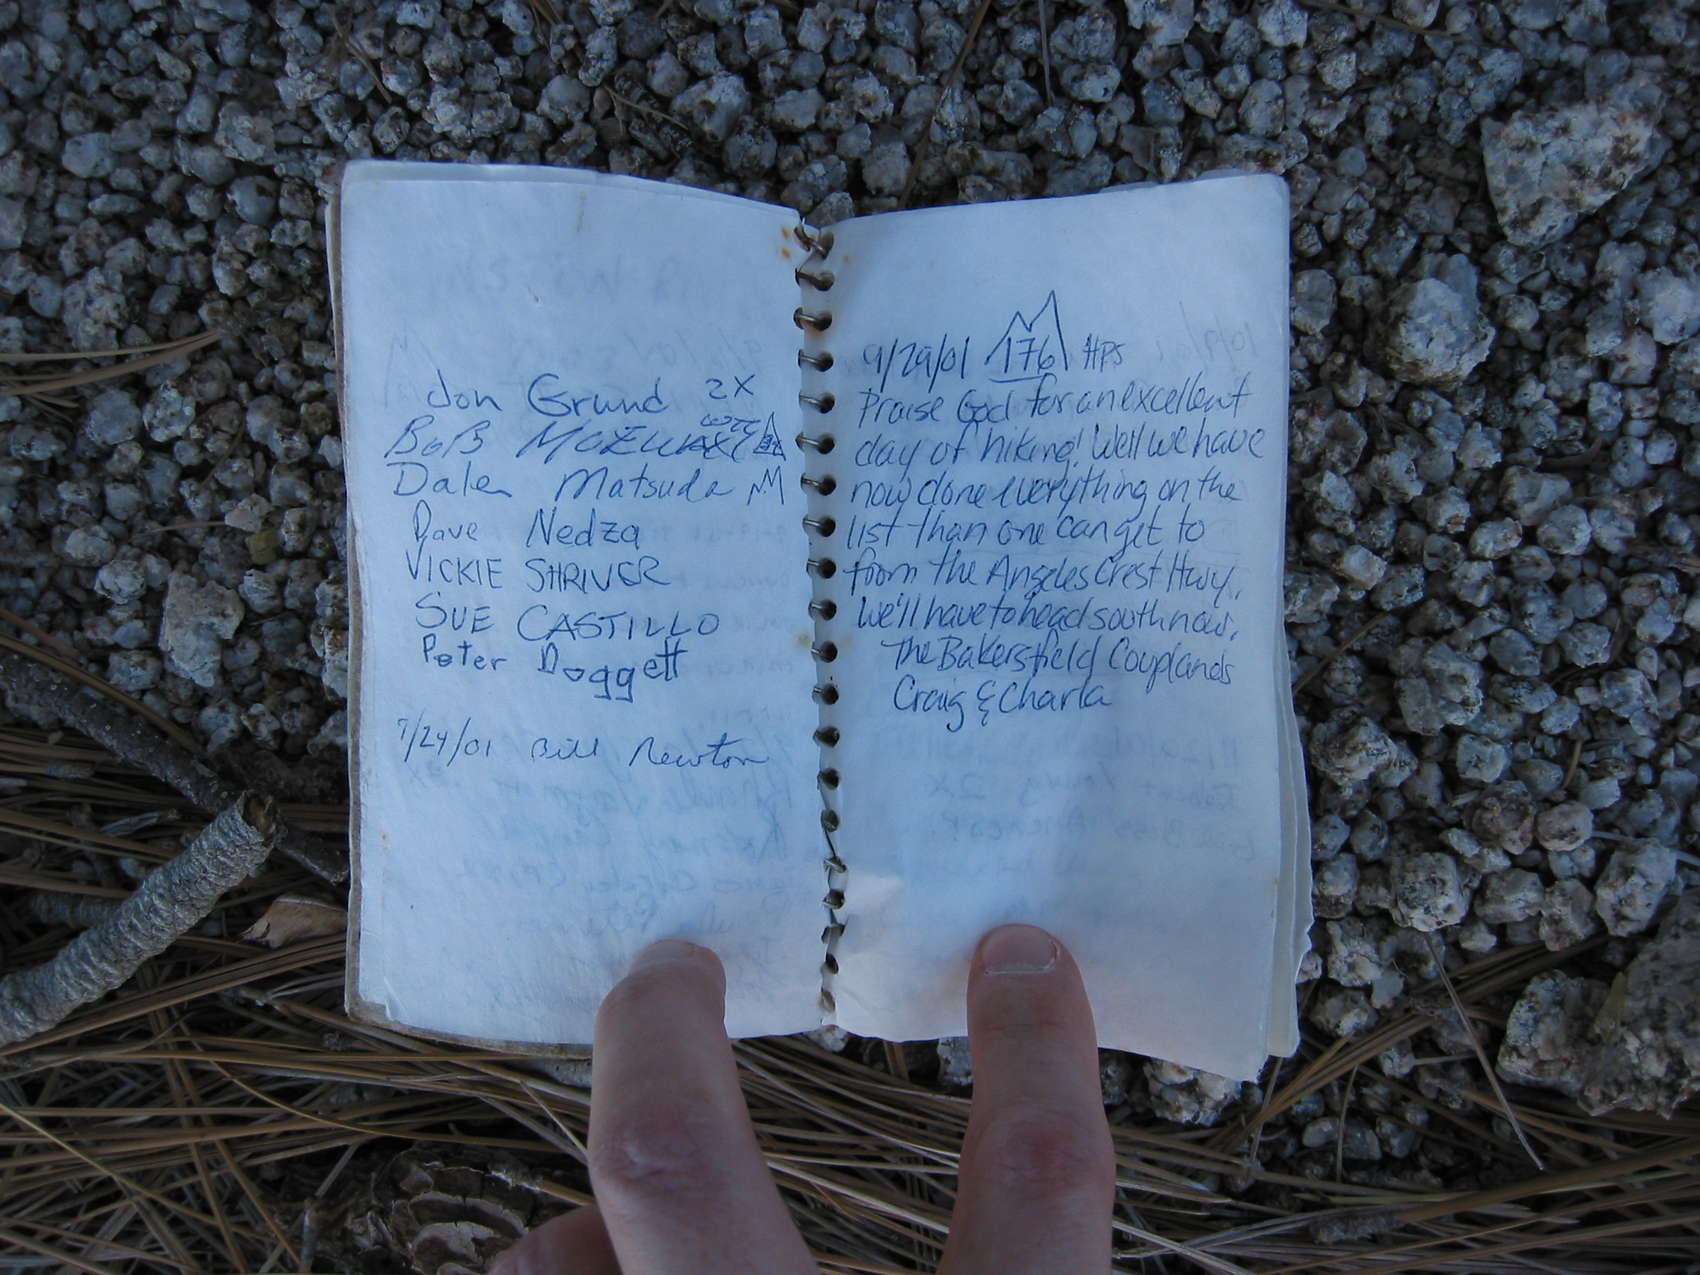 Jon Grund 2X
BOB
Dale Matsuda
Dave Nedza
VICKIE SHRIVER
SUE CASTILLO
Peter Doggett
7/24/01 Bill Newton
9/29/01 176 HPS
Praise God for an excellent
day of hiking! Well we have
now done everything on the
list than one can get to
from the Angeles Crest Hwy.
We'll have to head south now.
The Bakersfield Couplands
Craig & Charla